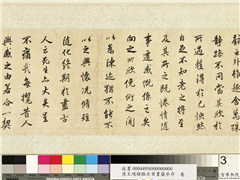 骸之外雖趣舍萬殊
靜躁不同當其欣於
所遇蹔得於己怏然
自足不知老之將至
及其所之既惓情隨
事遷感慨係之矣
向之所欣俛仰之間
以為陳迹猶不能不
以之興懷況脩短
隨化終期於盡古
人云死生亦大矣豈
不痛哉每攬昔人
興感之由若合一契
3